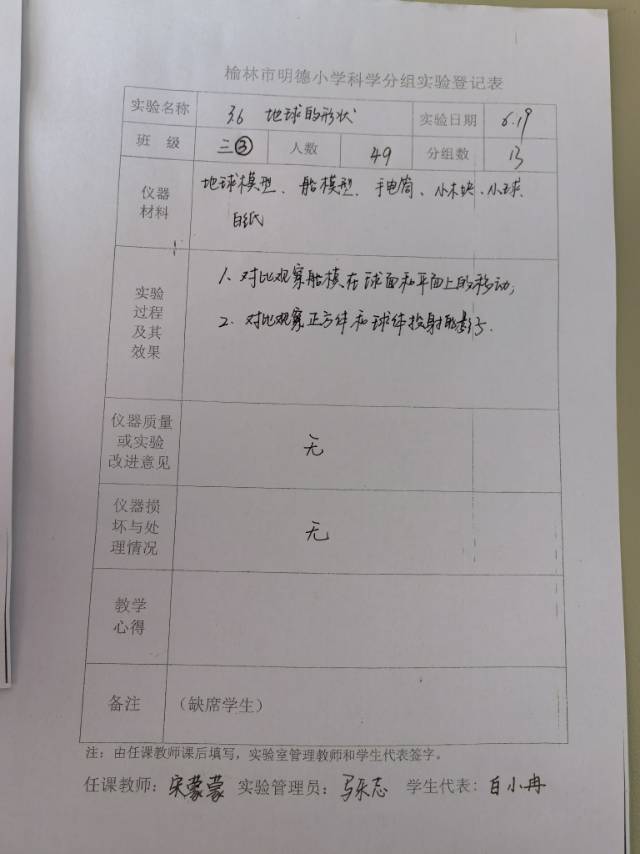 榆林市明德小学科学分组实验登记表
实验名称 3.6 地球的形状 实验日期 6.19
班 级 三③ 人数 49 分组数 13
仪器材料 地球模型、船模型、手电筒、小木块、小球、
白纸
实验过程及其效果 1. 对比观察船模在球面和平面上的移动;
2. 对比观察正方体和球体投射的影子.
仪器质量或实验改进意见 无
仪器损坏与处理情况 无
教学心得
备注 (缺席学生)
注: 由任课教师课后填写,实验室管理教师和学生代表签字。
任课教师: 宋蒙蒙 实验管理员: 马乐志 学生代表: 白小冉